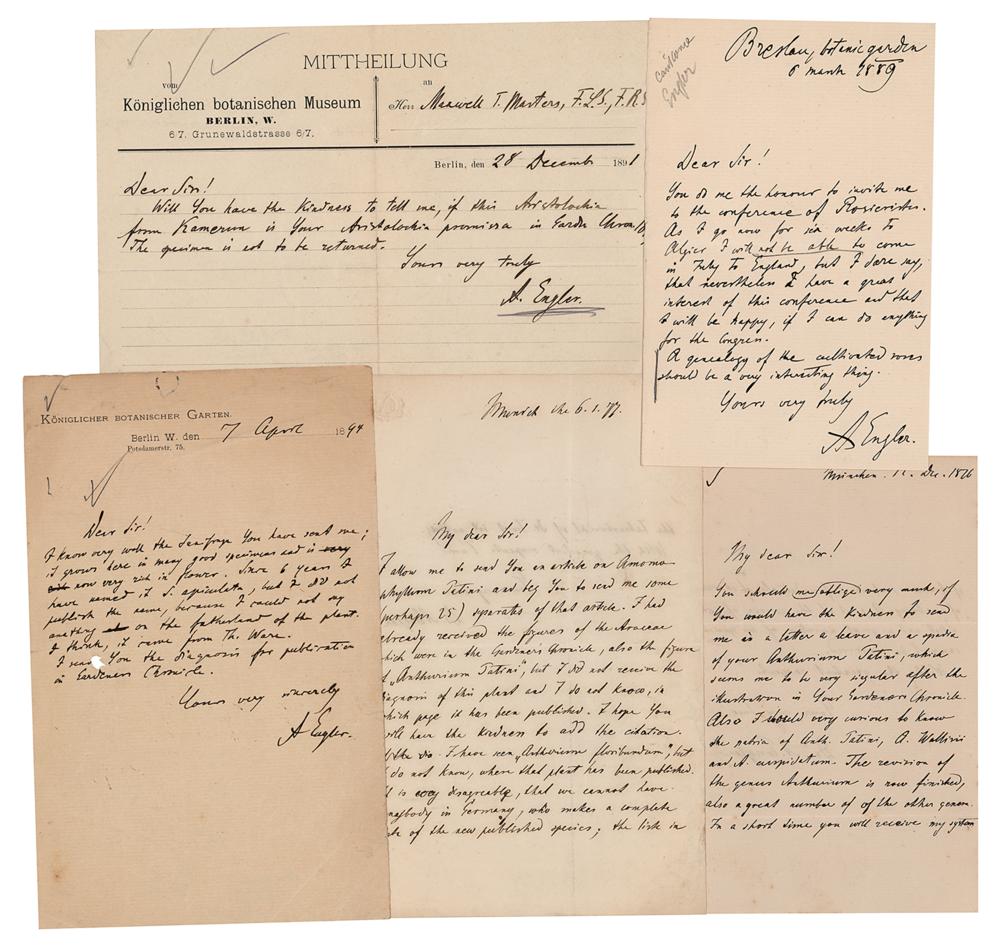 MITTHEILUNG
vom
an
Königlichen botanischen Museum
BERLIN, W.
6/7. Grunewaldstrasse 6/7.
Herr Maxwell T. Masters, F.L.S., F.R.S
Berlin, den 28 December 1891
Dear Sir!
Will You have the Kindness to tell me, if this Aristolochia
from Kamerun is Your Aristolochia promissa in Garden Chron.
The specimen is not to be returned.
Yours very truly
A. Engler.
Engler
Breslau, botanic garden
6 march 1889
Dear Sir!
You do me the honour to invite me
to the conference of Rosicrister.
As I go now for six weeks to
Algier I will not be able to come
in July to England, but I dare say,
that nevertheless I have a great
interest of this conference and that
I will be happy, if I can do anything
for the Congress.
A genealogy of the cultivated roses
should be a very interesting thing.
Yours very truly
A Engler.
KÖNIGLICHER BOTANISCHER GARTEN.
Berlin W. den 7 April 1894
Potsdamerstr. 75.
Dear Sir!
I know very well the Saxifraga You have sent me;
it grows here in many good specimens and is very
now very rich in flower. Since 6 years I
have named it S. apiculata, but I did not
publish the name, because I could not say
anything on the fatherland of the plant.
I think, it came from Th. Ware.
I send You the diagnosis for publication
in Gardeners Chronicle.
Yours very sincerely
A Engler.
Munich the 6.1.77.
My dear Sir!
I allow me to send You an article on Amomo
phyllum Tatini and beg You to send me some
(perhaps 25) separates of that article. I had
already received the figures of the Araceae
which were in the Gardeners Chronicle, also the figure
of "Anthurium Tatini", but I did not receive the
diagnosis of this plant and I do not know, in
which page it has been published. I hope You
will have the kindness to add the citation.
I have seen "Anthurium floribundum", but
I do not know, where that plant has been published.
It is very disagreable, that we cannot have
anybody in Germany, who makes a complete
of the new published species; the liste in
München. 12. Dec. 1876
My dear Sir!
You should me oblige very much, if
You would have the kindness to send
me in a letter a leave and a spadix
of your Anthurium Tatini, which
seems me to be very singular after the
illustration in Your Gardeners Chronicle.
Also I would very curious to know
the patria of Anth. Tatini, A. Wallisii
and A. cuspidatum. The revision of
the genus Anthurium is now finished,
also a great number of of the other genera.
In a short time you will receive my system